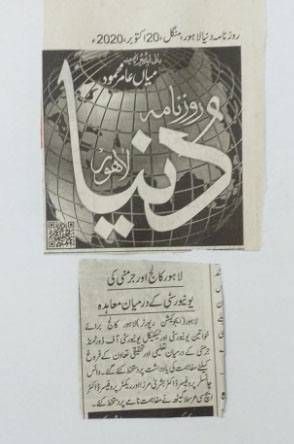 روزنامہ دنیا لاہور، منگل، 20 اکتوبر، 2020ء
میاں عامر محمود
روزنامہ
دنیا
لاہور
لاہور کالج اور جرمنی کی
یونیورسٹی کے درمیان معاہدہ
لاہور (ایجوکیشن رپورٹر) لاہور کالج برائے
خواتین یونیورسٹی اور ٹیکنیکل یونیورسٹی آف ڈورٹمنڈ
جرمنی کے درمیان تعلیمی اور تحقیقی تعاون کے فروغ
کیلئے مفاہمت کی یادداشت پر دستخط کئے گئے۔ وائس
چانسلر پروفیسر ڈاکٹر بشریٰ مرزا اور ریکٹر پروفیسر ڈاکٹر
نے مفاہمت نامے پر دستخط کئے۔